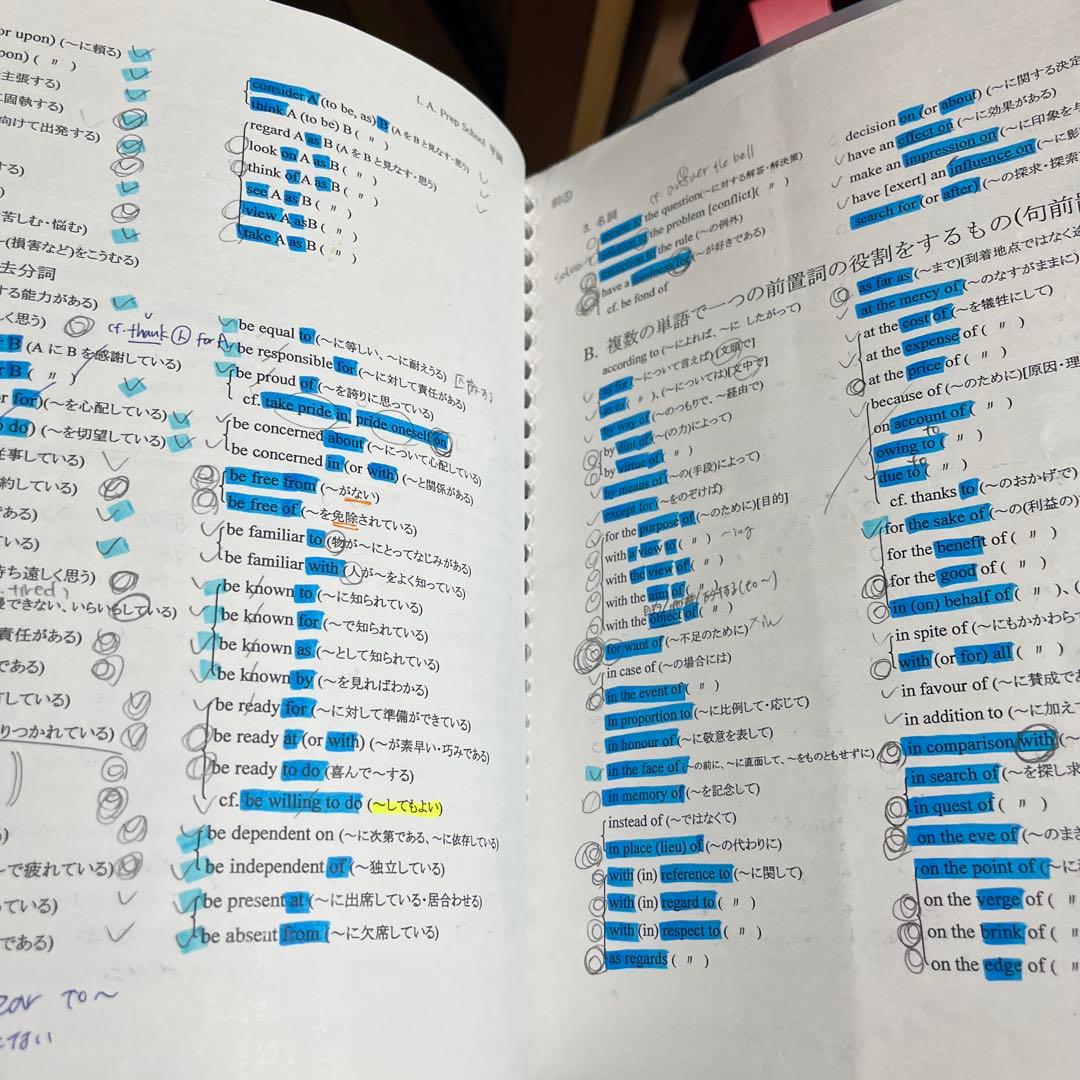 or upon) (～に頼る)
pon) ( 〃 )
主張する)
に固執する)
向けて出発する)
する)
苦しむ・悩む)
(損害など)をこうむる)
去分詞
する能力がある)
しく思う)
cf. thank 人 for
B (A に B を感謝している)
B ( 〃 )
or for) (～を心配している)
o do) (～を切望している)
従事している)
約している)
である)
ている)
待ち遠しく思う)
慢できない、いらいらしている)
責任がある)
である)
している)
りつかれている)
で疲れている)
っている)
である)
I. A. Prep School
consider A (to be, as) B (A を B と見なす・思う)
think A (to be) B ( 〃 )
regard A as B (A を B と見なす・思う)
look on A as B ( 〃 )
think of A as B ( 〃 )
see A as B ( 〃 )
view A as B ( 〃 )
take A as B ( 〃 )
be equal to (～に等しい、～に耐えうる)
be responsible for (～に対して責任がある)
be proud of (～を誇りに思っている)
cf. take pride in, pride oneself on
be concerned about (～について心配している)
be concerned in (or with) (～と関係がある)
be free from (～がない)
be free of (～を免除されている)
be familiar to (物が～にとってなじみがある)
be familiar with (人が～をよく知っている)
be known to (～に知られている)
be known for (～で知られている)
be known as (～として知られている)
be known by (～を見ればわかる)
be ready for (～に対して準備ができている)
be ready at (or with) (～が素早い・巧みである)
be ready to do (喜んで～する)
cf. be willing to do (～してもよい)
be dependent on (～に次第である、～に依存している)
be independent of (～独立している)
be present at (～に出席している・居合わせる)
be absent from (～に欠席している)
to～
cf. answer the bell
3. 名詞
answer to the question(～に対する解答・解決策)
solution to the problem [conflict]( 〃 )
solve
exception to the rule (～の例外)
have a fondness for (～が好きである)
cf. be fond of
B. 複数の単語で一つの前置詞の役割をするもの(句前置
according to (～によれば、～に したがって)
as for (～について言えば)[文頭で]
as to ( 〃 )、(～については)[文中で]
by way of (～のつもりで、～経由で)
by dint of (～(の力)によって)
by virtue of ( 〃 )
by means of (～の(手段)によって)
except for (～をのぞけば)
for the purpose of (～のために)[目的]
with a view to ( 〃 ) ～ing
with the view of ( 〃 )
with the aim of ( 〃 )
with the object of ( 〃 )
for want of (～不足のために)
in case of (～の場合には)
in the event of ( 〃 )
in proportion to (～に比例して・応じて)
in honour of (～に敬意を表して)
in the face of (～の前に、～に直面して、～をものともせずに)
in memory of (～を記念して)
instead of (～ではなくて)
in place (lieu) of (～の代わりに)
with (in) reference to (～に関して)
with (in) regard to ( 〃 )
with (in) respect to ( 〃 )
as regards ( 〃 )
decision on (or about) (～に関する決定
have an effect on (～に効果がある)
make an impression on (～に印象を与
have [exert] an influence on (～に影
search for (or after) (～の探求・探索
as far as (～まで)[到着地点ではなく途
at the mercy of (～のなすがままに)
at the cost of (～を犠牲にして)
at the expense of ( 〃 )
at the price of ( 〃 )
because of (～のために)[原因・理
on account of ( 〃 )
owing to ( 〃 )
due to ( 〃 )
cf. thanks to (～のおかげで)
for the sake of (～の(利益の)
for the benefit of ( 〃 )
for the good of ( 〃 )
in (on) behalf of ( 〃 )、(
in spite of (～にもかかわら
with (or for) all ( 〃 )
in favour of (～に賛成であ
in addition to (～に加え
in comparison with (～
in search of (～を探し求
in quest of ( 〃 )
on the eve of (～のまさ
on the point of (～に
on the verge of ( 〃
on the brink of ( 〃
on the edge of ( 〃